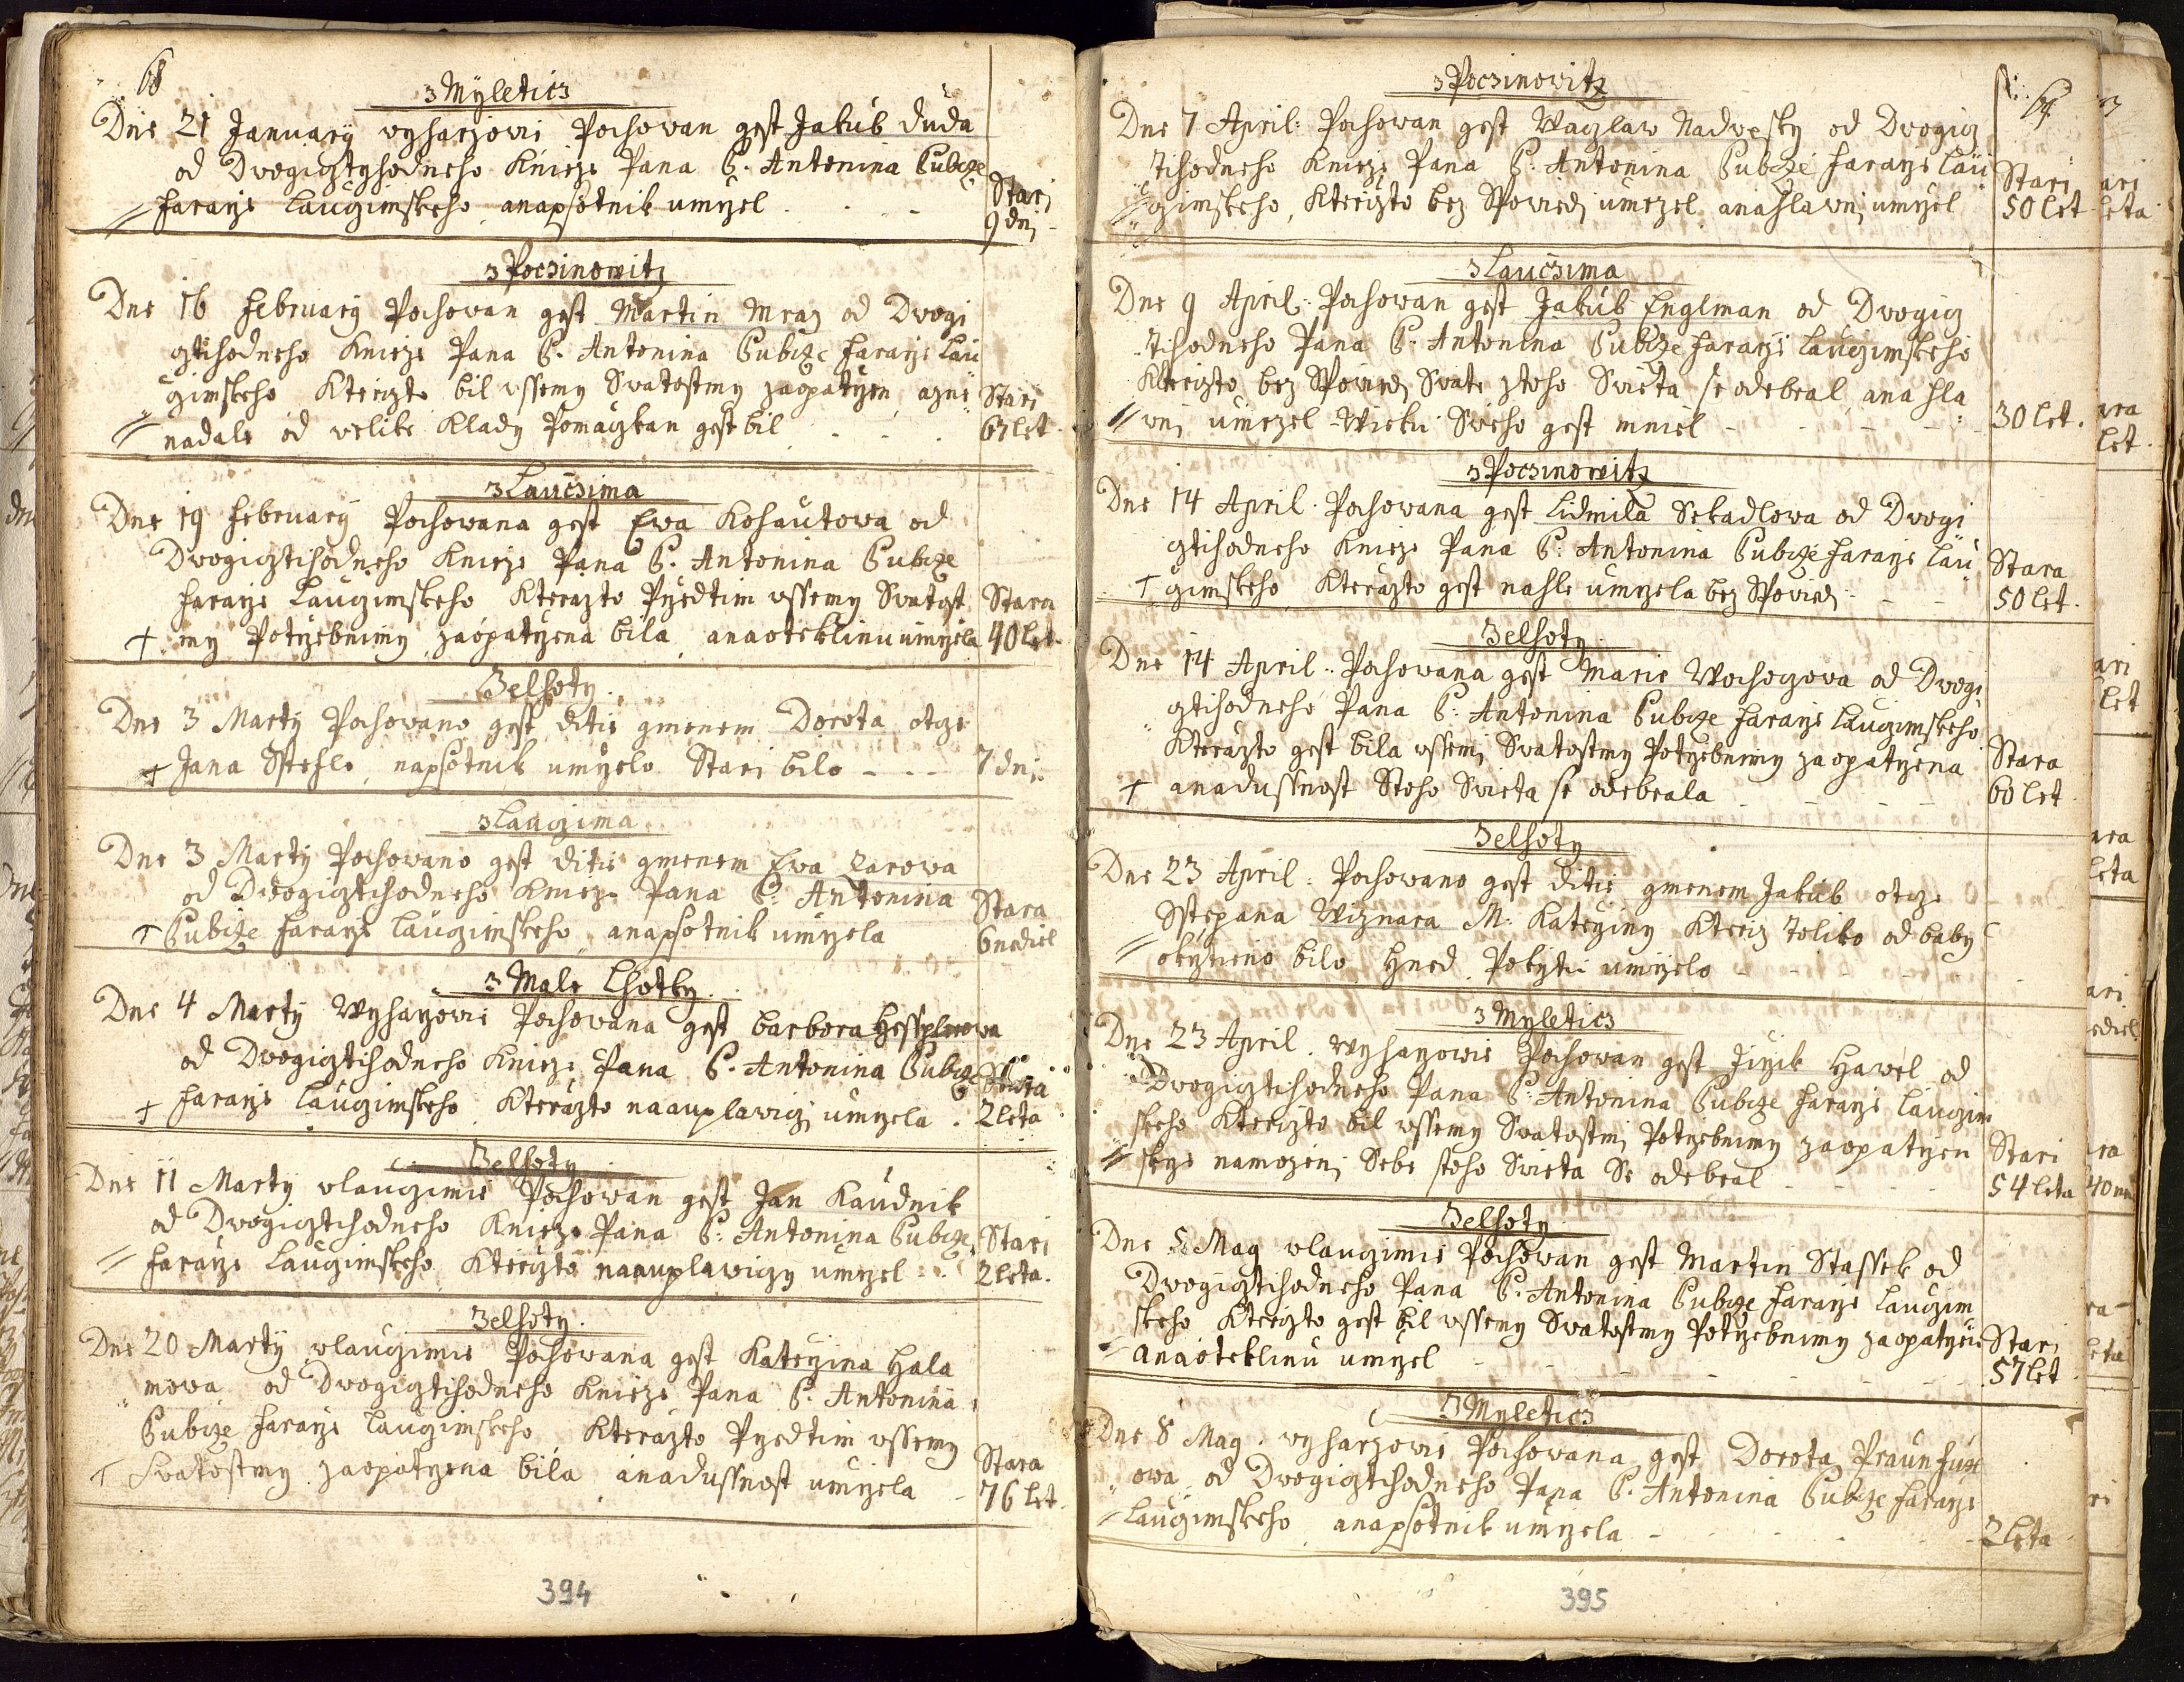 68
z Myleticz
Dne 21 January wyharzowie Pochowan gest Jakub Duda
od Dwogictyhodneho Knieze Pana P. Antonina Cubize
Faraze Laucimskeho anapsotnik umrzel
Stari
9 dni
z Poczinowitz
Dne 16 February Pochowan gest Martin Mraz od Dwogi
cztihodneho Knieze Pana P. Antonina Cubize faraze Lau
cimskeho Kterizto bil wssemy Swatostmy zaopatrzen, azne
nadale od welike Klady Pomaczkan gest bil
Stari
67 let
z Lauczima
Dne 19 February Pochowana gest Ewa Kohautowa od
Dwogicztihodneho Knieze Pana P. Antonina Cubize
faraze Laucimskeho Kterazto Przedtim wssemy Swatost
my Potrzebnimy zaopatrzena bila, anaoteklinu umrzela
Stara
40 let
Zelhoty
Dne 3 Marty Pochowano gest ditie gmenem Dorota otcze
Jana Stehle, napsotnik umrzelo Stari bilo
7 dni
z Lauczima
Dne 3 Marty Pochowano gest ditie gmenem Ewa Zarowa
od Dwogicztihodneho Knieze Pana P. Antonina
Cubize Faraze Laucimskeho, anapsotnik umrzela
Stara
6 nediel
z Male Lhotky
Dne 4 Marty Wyharzowie Pochowana gest barbora
od Dwogicztihodneho Knieze Pana P. Antonina Cubize
faraze Laucimskeho Kterazto naauplawicz umrzela
Stara
2 leta
Zelhoty
Dne 11 Marty wlauczimie Pochowan gest Jan Kaudnik
od Dwogicztihodneho Knieze Pana P. Antonina Cubize
faraze Laucimskeho, Kterizto naauplawiczy umrzel
Stari
2 leta
Zelhoty
Dne 20 Marty wlauczimie Pochowana gest Katerzina Hala
mowa od Dwogicztihodneho Knieze Pana P. Antonina
Cubize faraze Laucimskeho Kterazto Przedtim wssemy
Swatostmy zaopatrzena bila anadussnost umrzela
Stara
76 let
394
z Poczinowitz
69
Dne 7 April: Pochowan gest Waczlaw Nadwesky od Dwogicz
tihodneho Knieze Pana P. Antonina Cubize faraze Lau
cimskeho, Kterizto bez Spowiedi umrzel anahlawni umrzel
Stari
50 let
z Lauczima
Dne 9 April: Pochowan gest Jakub Englman od Dwogicz
tihodneho Pana P. Antonina Cubize faraze Laucimskeho
Kterizto bez Spowiedi Swate ztoho Swieta se odebral, ana hla
wni umrzel Wieku Sweho gest miel
30 let.
z Poczinowitz
Dne 14 April. Pochowana gest Lidmila Sekadlowa od Dwogi
cztihodneho Knieze Pana P. Antonina Cubize faraze Lau
cimskeho Kterazto gest nahle umrzela bez Spowiedi
Stara
50 let.
Zelhoty
Dne 14 April: Pochowana gest Marie Wochoczowa od Dwogi
cztihodneho Pana P. Antonina Cubize faraze Laucimskeho
Kterazto gest bila wssemi Swatostmy Potrzebnimy zaopatrzena
anadussnost Stoho Swieta se odebrala
Stara
60 let
Zelhoty
Dne 23 April: Pochowano gest ditie gmenem Jakub otcze
Sstepana Wiznara M. Katerziny Kteriz toliko od baby
okrztieno bilo, Hned Pokrztu umrzelo
z Myleticz
Dne 23 April. wyharzowie Pochowan gest Jirzik Hawel od
Dwogicztihodneho Pana P. Antonina Cubize faraze Laucim
skeho Kterizto bil wssemy Swatostmi Potrzebnimy zaopatrzen
skrze namozeni Sebe stoho Swieta Se odebral
Stari
54 leta
Zelhoty
Dne 5 May wlauczimie Pochowan gest Martin Stassek od
Dwogicztihodneho Pana P. Antonina Cubize faraze Laucim
skeho Kterizto gest bil wssemy Swatostmy Potrzebnimy zaopatrzen
anaoteklinu umrzel
Stari
57 let
z Myleticz
Dne 8 May. wyharzowie Pochowana gest Dorota
owa od Dwogicztihodneho Pana P. Antonina Cubize faraze
Laucimskeho anapsotnik umrzela
2 leta
395